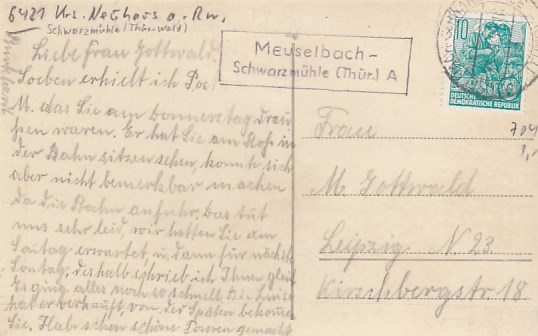 6421 Krs. Neuhaus a. Rw.
Schwarzmühle (Thür. Wald)
Liebe Frau Gottwald.
Soeben erhielt ich Post
M. das Sie am Donnerstag drau
ßen waren. Er hat Sie am Rofs in
der Bahn sitzen sehen, konnte sich
aber nicht bemerkbar machen
da die Bahn anfuhr. Das tut
uns sehr leid, wir hatten Sie am
Sontag erwartet, u. dann für nächst
Sontag, deshalb schrieb ich Ihnen gleich
Es ging alles noch so schnell. Die
hat er verkauft, von der Späten bekomm
Sie. Hab schon schöne Touren gemacht
Meuselbach-
Schwarzmühle (Thür.) A
10
DEUTSCHE
DEMOKRATISCHE REPUBLIK
704
1,-
Frau
M. Gottwald
Leipzig N 23.
Kirschbergstr. 18